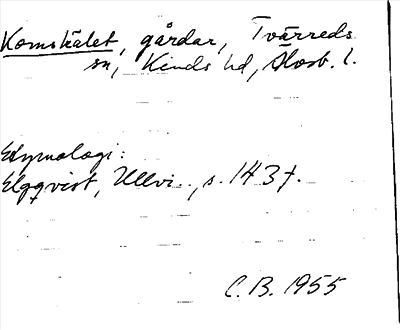 Komskälet, gårdar, Tvärreds
sn, Kinds hd, Älvsb. l.
Etymologi:
Elgqvist, Ullvi.., s. 143 f.
C. B. 1955